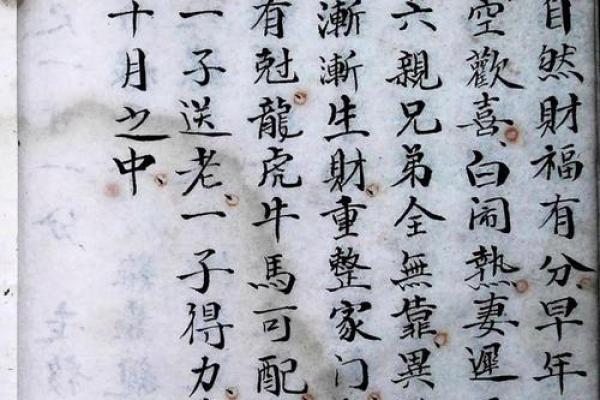 自然財福有分早年
空歡喜白闹熱妻遲
六親兄弟全無靠異
漸漸生財重整家门
有尅龍虎牛馬可配
一子送老一子得力
十月之中